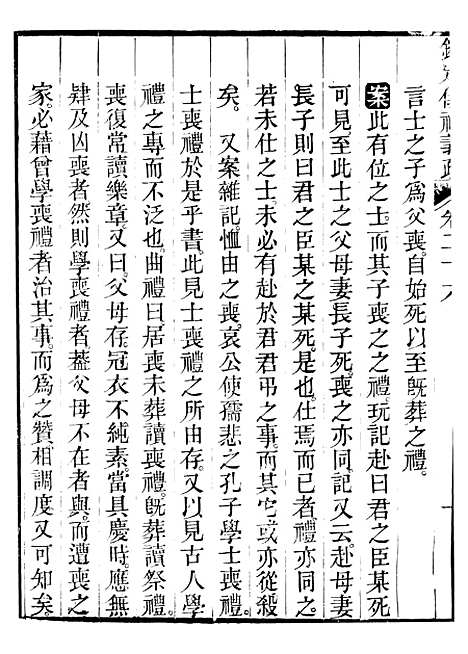 欽定儀禮義疏 卷二十八
言士之子爲父喪自始死以至旣葬之禮。
案此有位之士。而其子喪之之禮。玩記赴曰君之臣某死
可見。至此士之父母妻長子死。喪之亦同。記又云。赴母妻
長子則曰君之臣某之某死。是也。仕焉而已者禮亦同之。
若未仕之士。未必有赴於君君弔之事。而其它或亦從殺
矣。 又案雜記。恤由之喪。哀公使孺悲之孔子學士喪禮。
士喪禮於是乎書。此見士喪禮之所由存。又以見古人學
禮之專而不泛也。曲禮曰。居喪未葬讀喪禮。旣葬讀祭禮。
喪復常讀樂章。又曰。父母存。冠衣不純素。當具慶時。應無
肄及凶喪者。然則學喪禮者。葢父母不在者與。而遭喪之
家。必藉曾學喪禮者治其事。而爲之贊相調度。又可知矣。